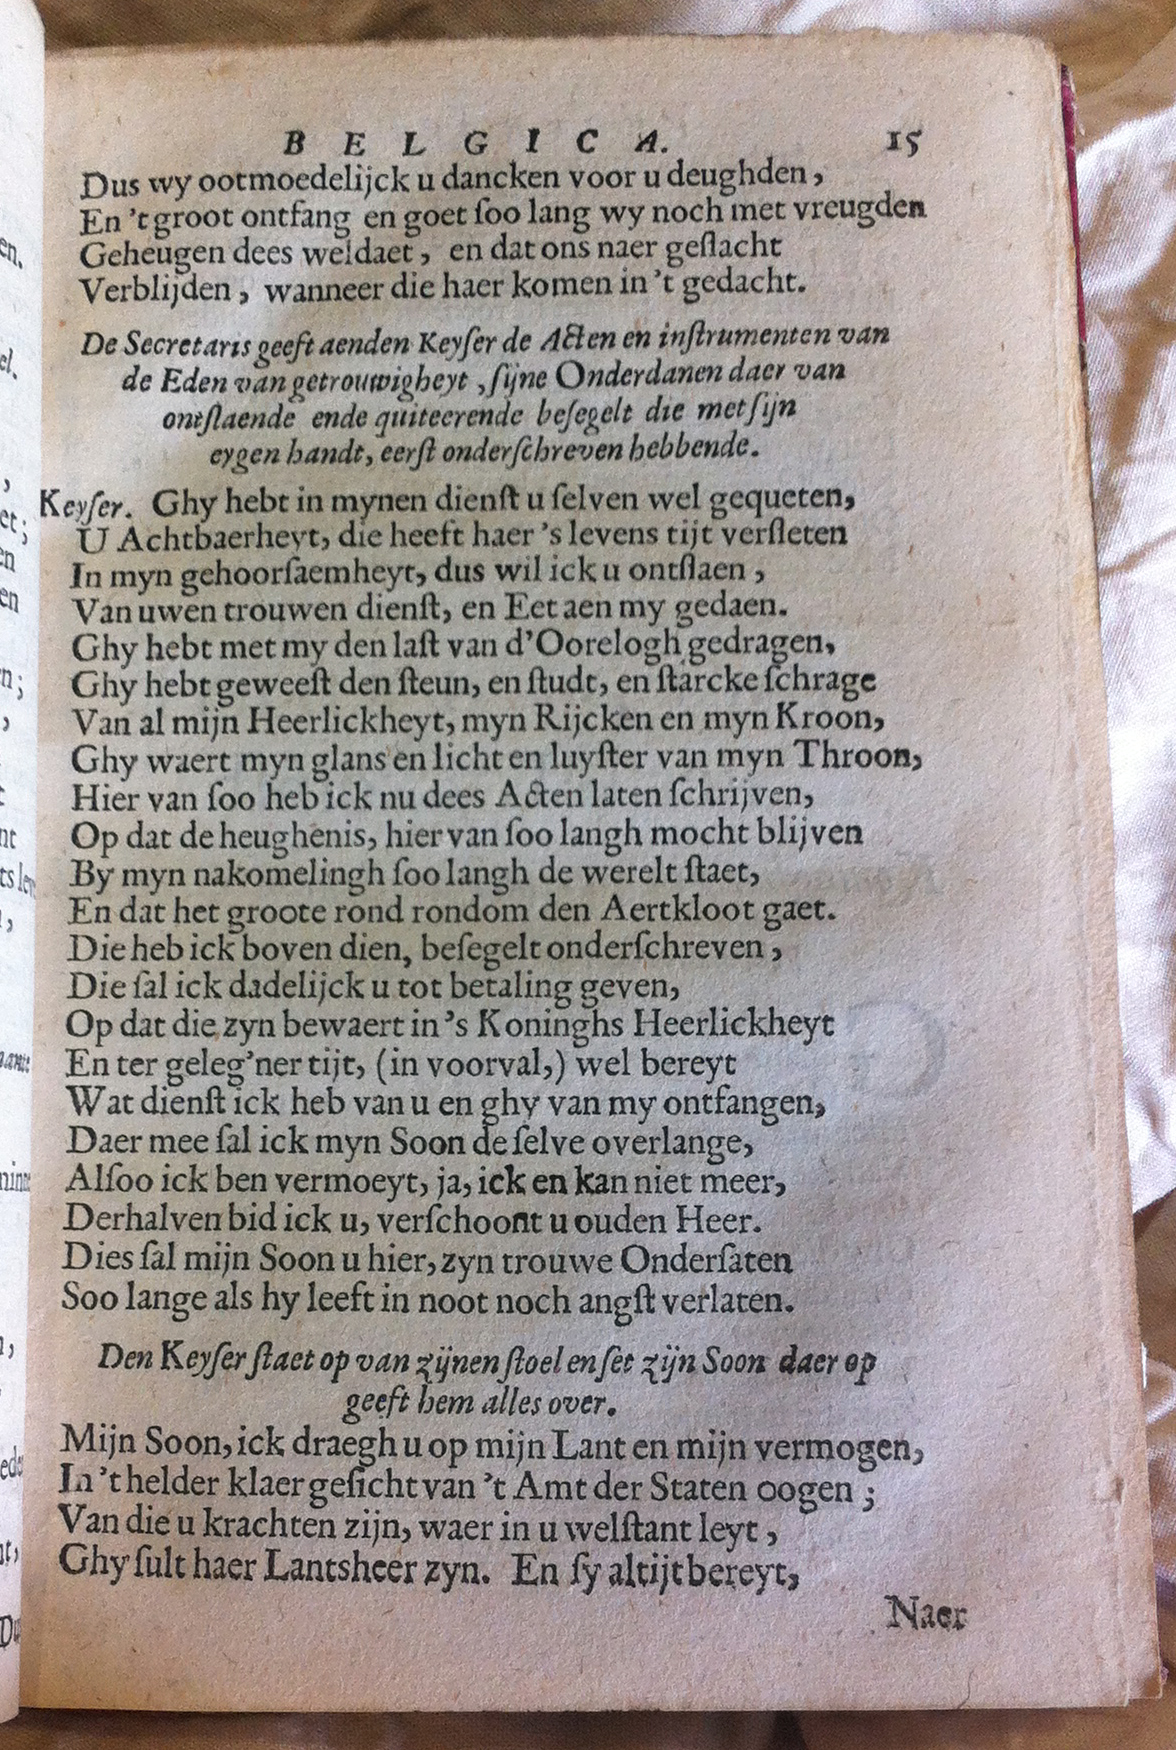 BELGICA. 15
Dus wy ootmoedelijck u dancken voor u deughden,
En 't groot ontfang en goet ſoo lang wy noch met vreugden
Geheugen dees weldaet, en dat ons naer geſlacht
Verblijden, wanneer die haer komen in 't gedacht.
De Secretaris geeft aenden Keyſer de Acten en inſtrumenten van
de Eden van getrouwigheyt, ſijne Onderdanen daer van
ontſlaende ende quiteerende beſegelt die met ſijn
eygen handt, eerſt onderſchreven hebbende.
Keyſer. Ghy hebt in mynen dienſt u ſelven wel gequeten,
U Achtbaerheyt, die heeft haer 's levens tijt verſleten
In myn gehoorſaemheyt, dus wil ick u ontſlaen,
Van uwen trouwen dienſt, en Eet aen my gedaen.
Ghy hebt met my den laſt van d'Oorelogh gedragen,
Ghy hebt geweeſt den ſteun, en ſtudt, en ſtarcke ſchrage
Van al mijn Heerlickheyt, myn Rijcken en myn Kroon,
Ghy waert myn glans en licht en luyſter van myn Throon,
Hier van ſoo heb ick nu dees Acten laten ſchrijven,
Op dat de heughenis, hier van ſoo langh mocht blijven
By myn nakomelingh ſoo langh de werelt ſtaet,
En dat het groote rond rondom den Aertkloot gaet.
Die heb ick boven dien, beſegelt onderſchreven,
Die ſal ick dadelijck u tot betaling geven,
Op dat die zyn bewaert in 's Koninghs Heerlickheyt
En ter geleg'ner tijt, (in voorval,) wel bereyt
Wat dienſt ick heb van u en ghy van my ontfangen,
Daer mee ſal ick myn Soon de ſelve overlange,
Alſoo ick ben vermoeyt, ja, ick en kan niet meer,
Derhalven bid ick u, verſchoont u ouden Heer.
Dies ſal mijn Soon u hier, zyn trouwe Onderſaten
Soo lange als hy leeft in noot noch angſt verlaten.
Den Keyſer ſtaet op van zijnen ſtoel en ſet zijn Soon daer op
geeft hem alles over.
Mijn Soon, ick draegh u op mijn Lant en mijn vermogen,
In 't helder klaer geſicht van 't Amt der Staten oogen;
Van die u krachten zijn, waer in u welſtant leyt,
Ghy ſult haer Lantsheer zyn. En ſy altijt bereyt,
Naer